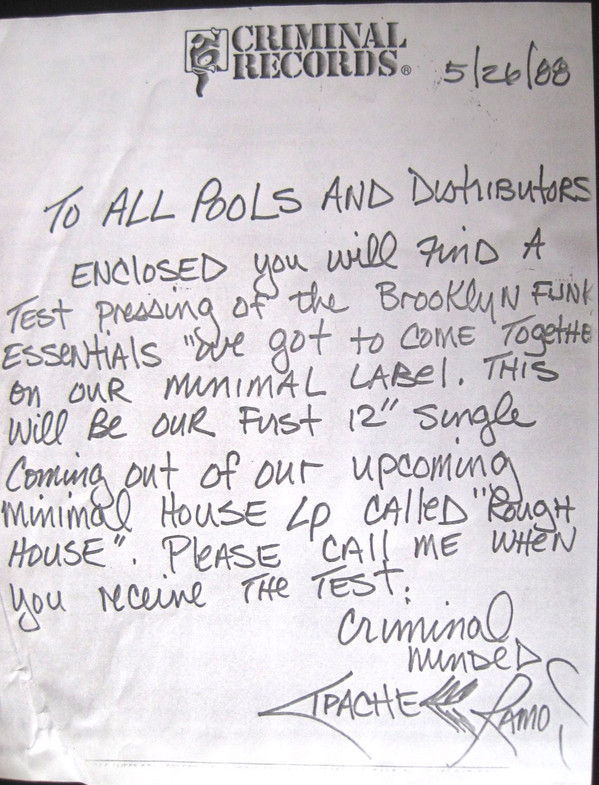 CRIMINAL
RECORDS®
5/26/88
TO ALL POOLS AND DISTRIBUTORS
ENCLOSED you will FIND A
TEST pressing of the BROOKLYN FUNK
ESSENTIALS "We got to COME TOGETHE
on OUR MINIMAL LABEL. THIS
Will BE OUR FIRST 12" Single
Coming out of our upcoming
Minimal HOUSE Lp CALLED "ROUGH
HOUSE". PLEASE CALL ME WHEN
you receive THE TEST.
Criminal
MINDED
APACHE RAMOS